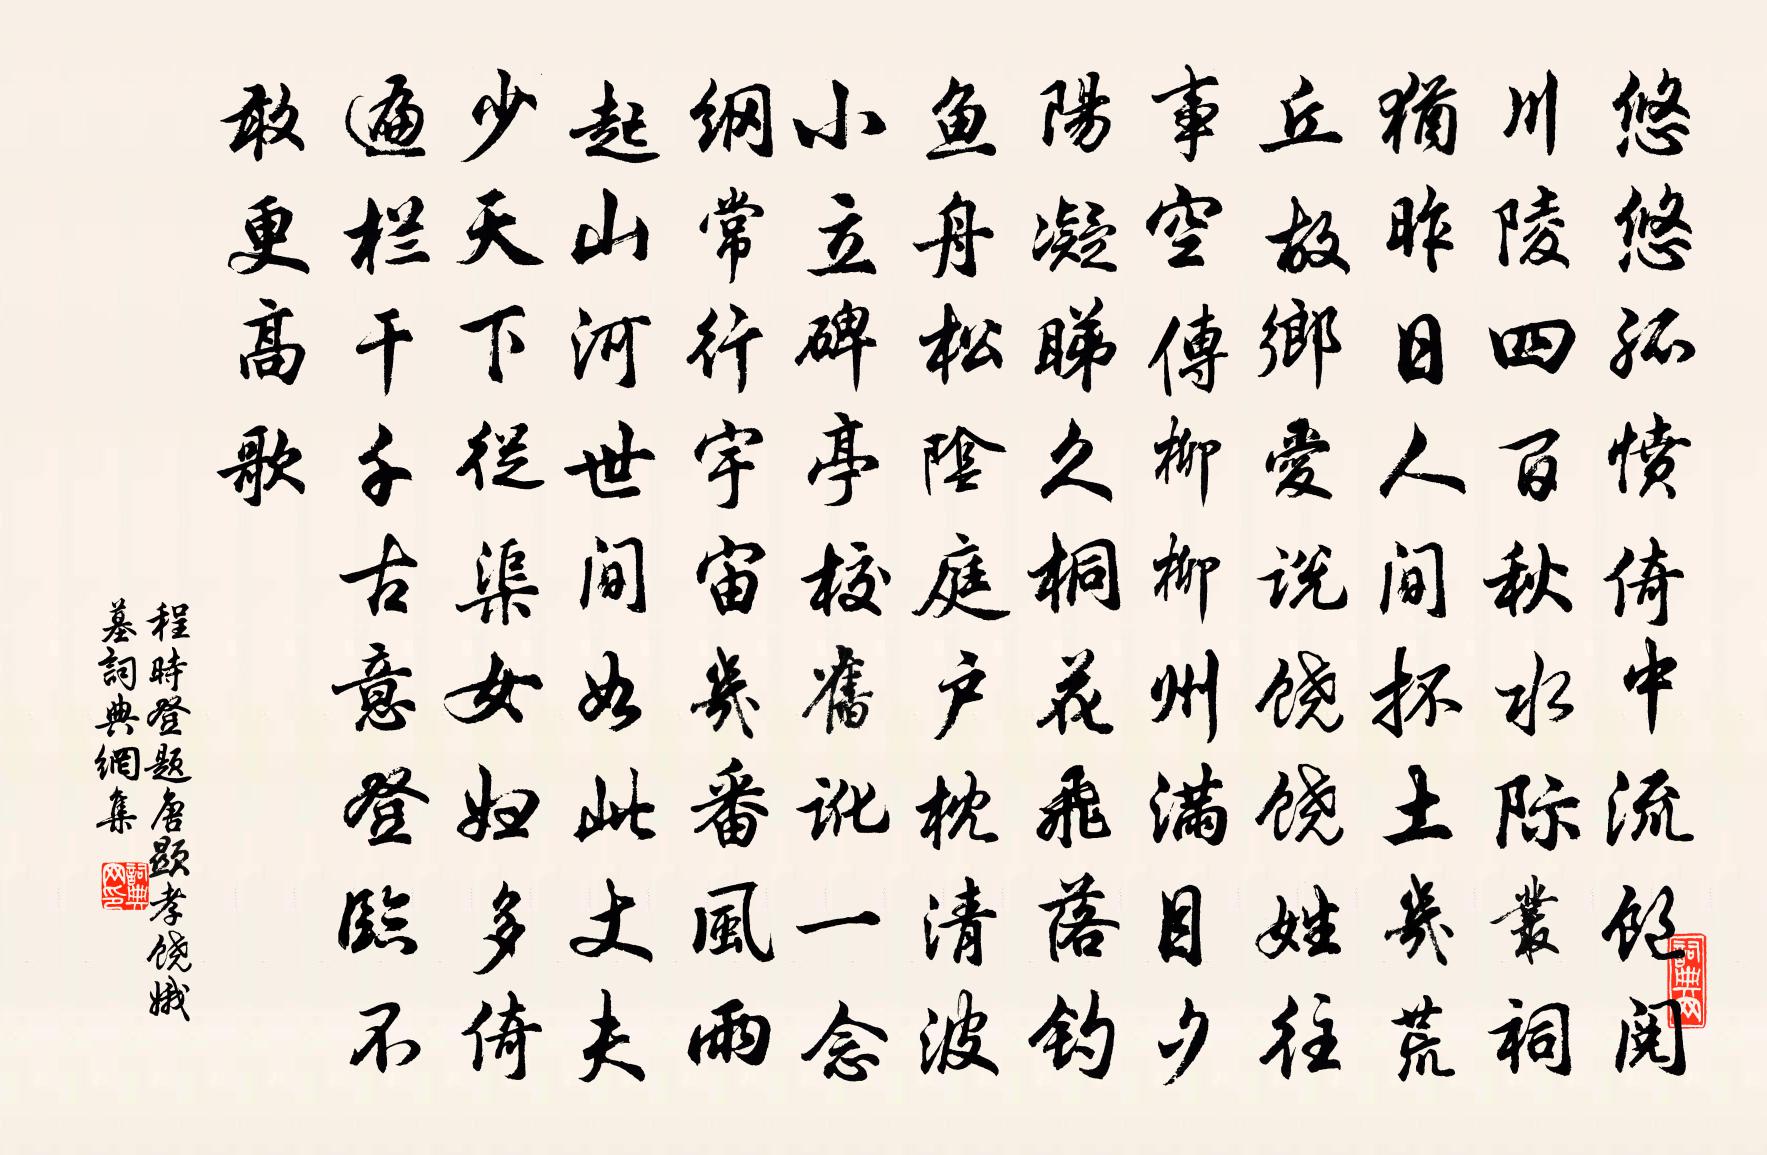 悠悠孤愤倚中流饱阅
川陵四百秋水际叢祠
猶昨日人间抔土幾荒
丘故鄉愛说饶饶姓往
事空傳柳柳州满目夕
陽凝睇久桐花飛落钓
鱼舟松陰庭户枕清波
小立碑亭校舊讹一念
纲常行宇宙幾番風雨
起山河世间如此丈夫
少天下從渠女妇多倚
遍栏干千古意登臨不
敢更高歌
程時登题唐顯孝饶娥
墓詞典網集
詞典网印
詞典网